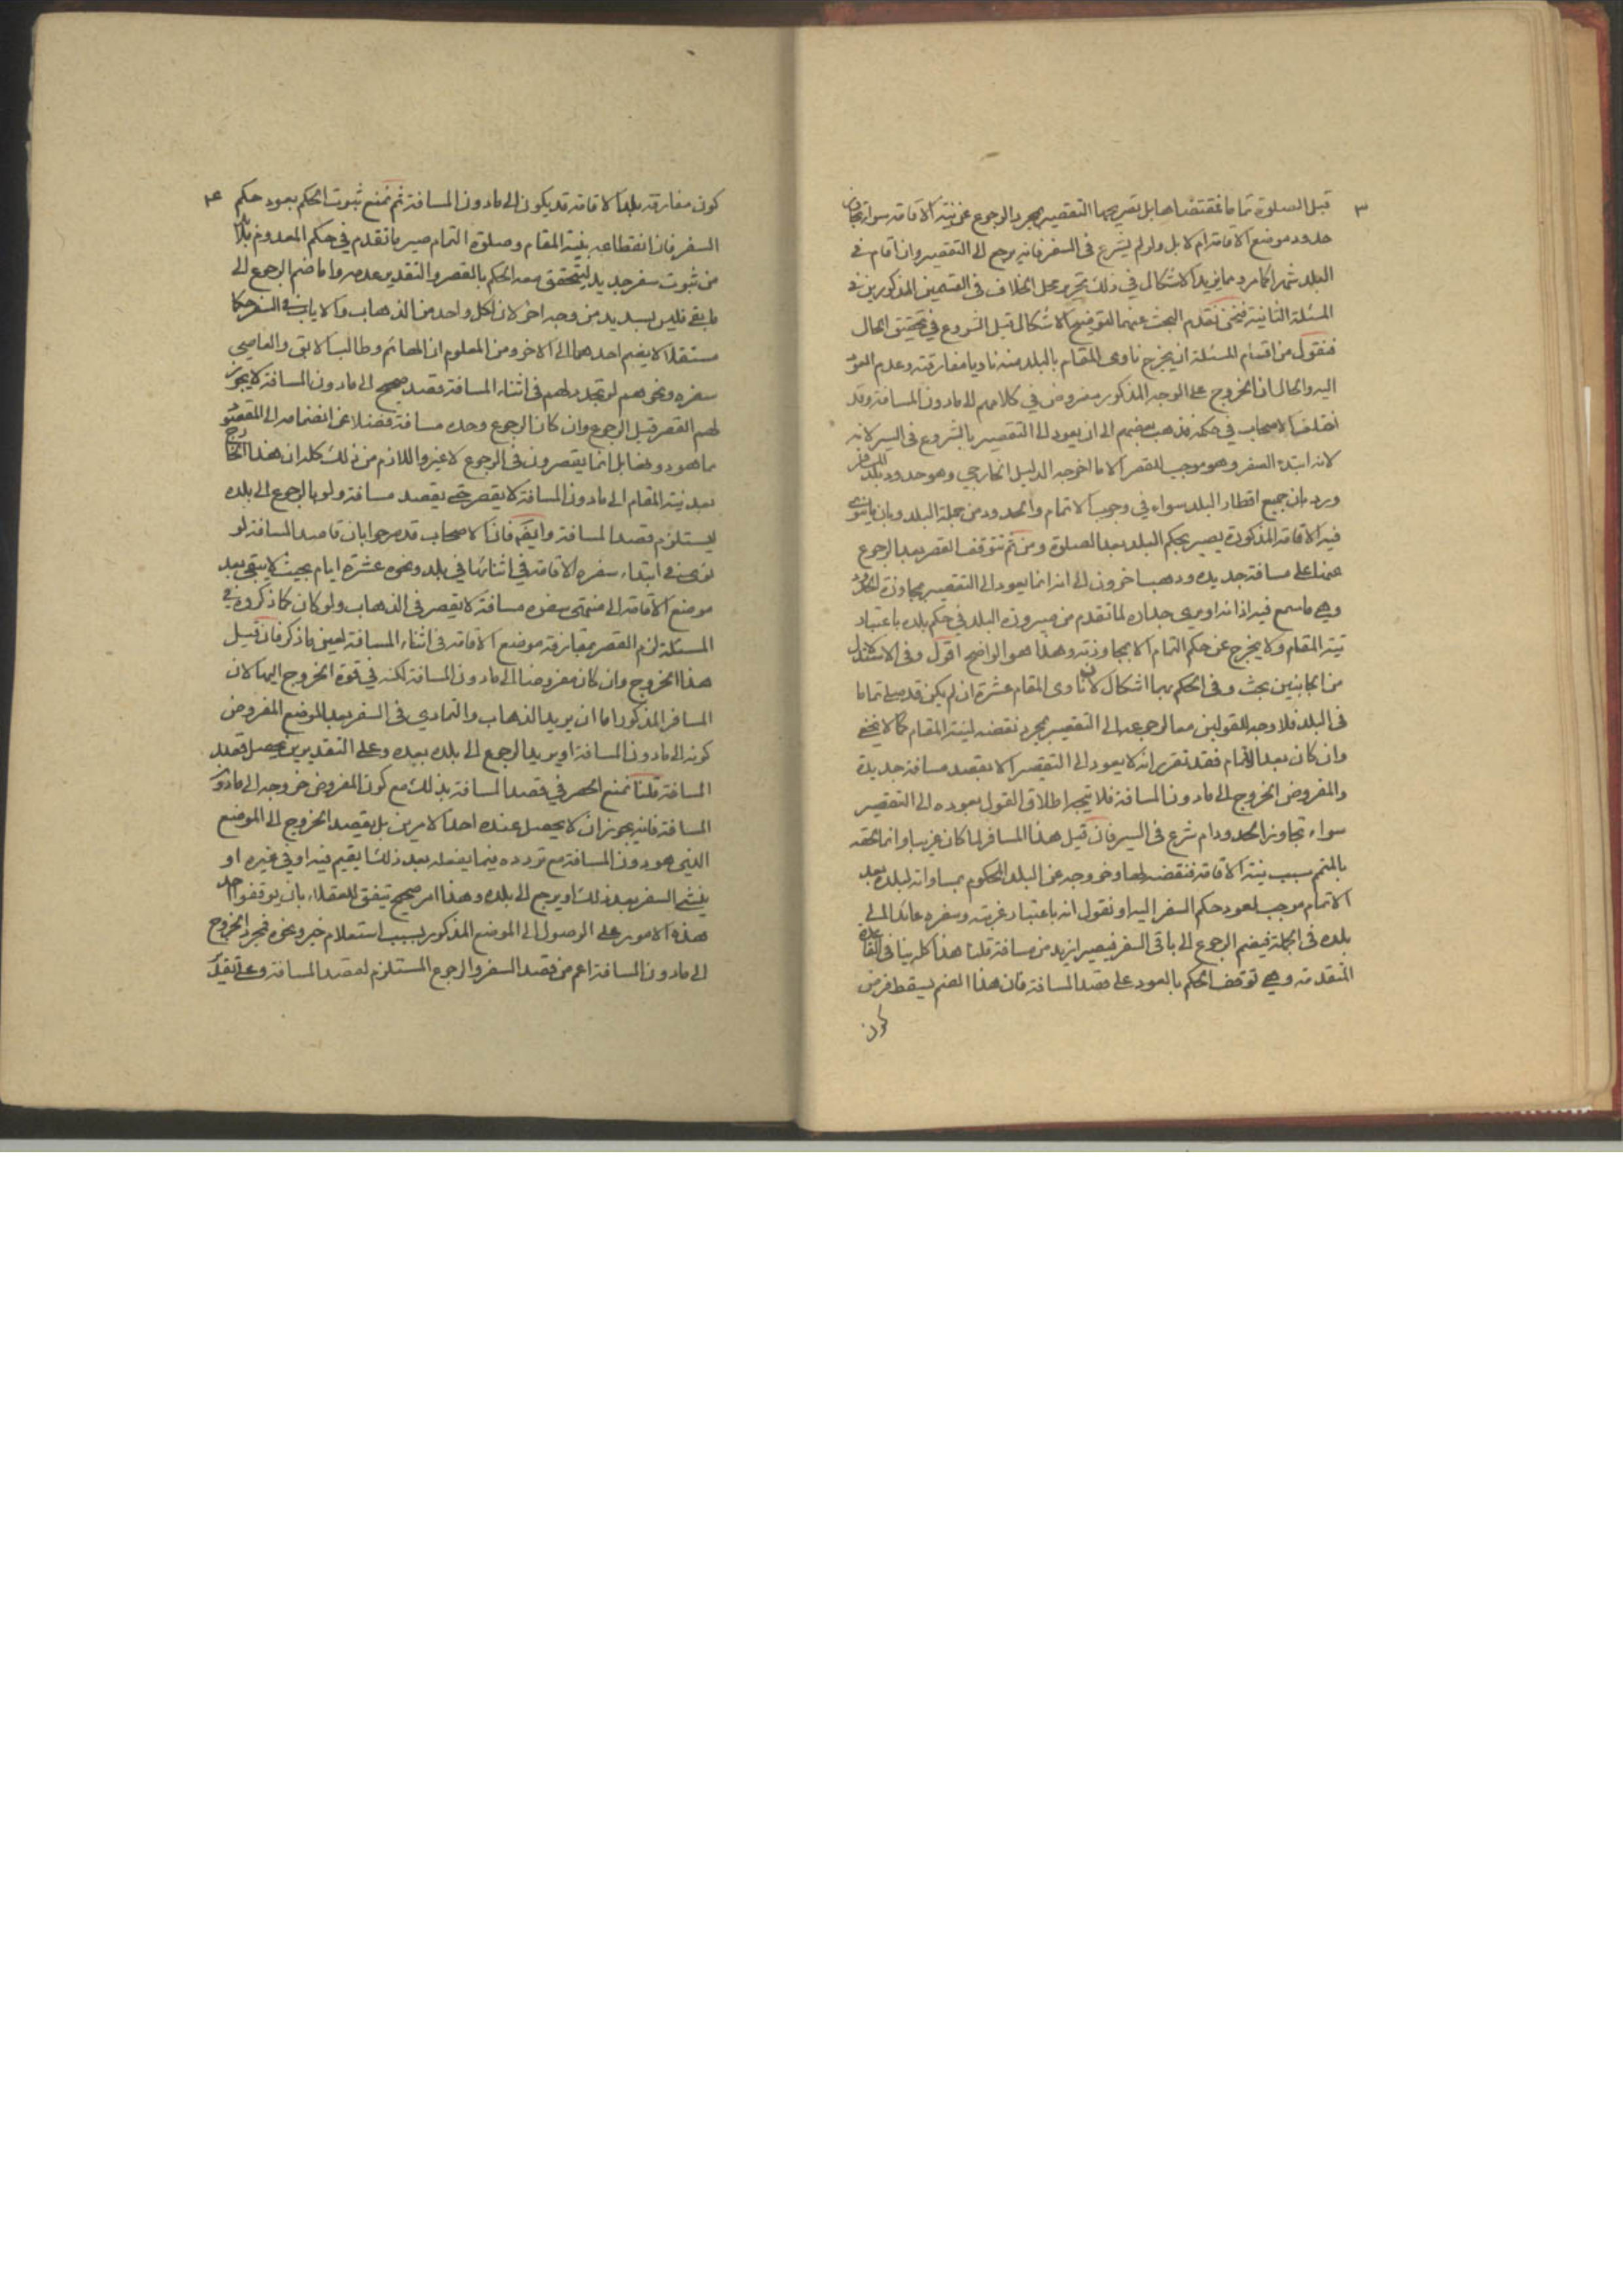 ٣
قبل الصلوة تماما فمقتضاها بل تصريحهما التقصير بمجرد الرجوع عن نية الاقامة سواء تجاوز
حدود موضع الاقامة ام لا بل ولو لم يشرع فى السفر فانه يرجع الى التقصير وان اقام فى
البلد شهرا كما مر ومما يزيد الاشكال في ذلك تحرير محل الخلاف فى القسمين المذكورين فى
المسئلة الثانية فنحن نقدم البحث عنهما لتوضيح الاشكال قبل الشروع في تحقيق الحال
فنقول من اقسام المسئلة ان يخرج ناوى المقام بالبلد منه ناويا مفارقته وعدم العود
اليه والحال ان الخروج على الوجه المذكور مفروض في كلامهم الى مادون المسافة وقد
اختلف الاصحاب في حكمه فذهب بعضهم الى ان يعود الى التقصير بالشروع فى السير لانه
لانه ابتداء السفر وهو موجب للقصر الا ما اخرجه الدليل الخارجي وهو حدود بلد المسافر
ورد بان جميع اقطار البلد سواء في وجوب الاتمام والحدود من جملة البلد وبان ما ينوى
فيه الاقامة المذكورة يصير بحكم البلد بعد الصلوة ومن ثم تتوقف القصر بعد الرجوع
عنها على مسافة جديدة وذهب اخرون الى انه انما يعود الى التقصير بمجاوزة الحدود
وهي ما سمع فيه اذانه او يرى جداره لما تقدم من صيرورة البلد في حكم بلده باعتبار
نية المقام ولا يخرج عن حكم التمام الا بمجاوزته وهذا هو الواضح اقول وفى الاستدلال
من الجانبين بحث وفى الحكم بهما اشكال لان ناوى المقام عشرة ان لم يكن قد صلى تماما
فى البلد فلا وجه للقولين معا لرجوعه الى التقصير بمجرد نقضه لنية المقام كما لا يخفى
وان كان بعد الاتمام فقد تقرر انه لا يعود الى التقصير الا بقصد مسافة جديدة
والمفروض الخروج الى مادون المسافة فلا يتجه اطلاق القول بعوده الى التقصير
سواء تجاوز الحدود ام شرع فى السير فان قيل هذا المسافر لما كان غريبا وانما الحقه
بالمتم سبب نية الاقامة فنقضه لها وخروجه عن البلد المحكوم بمساواته لبلده بعد
الاتمام موجب لعود حكم السفر اليه او نقول انه باعتبار غربته وسفره عائد الى
بلده فى الجملة فيضم الرجوع الى باقى السفر فيصير ازيد من مسافة قلنا هذا كله ينافى القاعدة
المتقدمة وهي توقف الحكم بالعود على قصد المسافة فان هذا الضم يسقط فرض
كون
٤
كون مفارقة بلد الاقامة قد يكون الى مادون المسافة ثم نمنع ثبوت الحكم بعود حكم
السفر فان انقطاعه بنية المقام وصلوة التمام صير ما تقدم في حكم المعدوم فلابد
من ثبوت سفر جديد ليتحقق معه الحكم بالقصر والتقدير عدمه واما ضم الرجوع الى
ما بقى فليس بسديد من وجه اخر لان لكل واحد من الذهاب والاياب فى السفر حكما
مستقلا لا يضم احدهما الى الاخر ومن المعلوم ان الهائم وطالب الابق والعاصي
سفره ونحوهم لو تجدد لهم فى اثناء المسافة قصد صحيح الى مادون المسافة لا يجوز
لهم القصر قبل الرجوع وان كان الرجوع وحده مسافة فضلا عن انضمامه الى المقصود
مما هو دونها بل انما يقصرون فى الرجوع لا غير واللازم من ذلك كله ان هذا الخارج
بعد نية المقام الى مادون المسافة لا يقصر حتى يقصد مسافة ولو بالرجوع الى بلده
ليستلزم قصد المسافة وايضا فان الاصحاب قد صرحوا بان قاصد المسافة لو
نوى فى ابتداء سفره الاقامة في اثنائها في بلد ونحوه عشرة ايام بحيث لا يبقى بعد
موضع الاقامة الى منتهى سفره مسافة لا يقصر فى الذهاب ولو كان كما ذكروه في
المسئلة لزم القصر بمفارقة موضع الاقامة فى اثناء المسافة لعين ما ذكر فان قيل
هذا الخروج وان كان مفروضا الى مادون المسافة لكنه في قوة الخروج اليها لان
المسافر المذكور اما ان يريد الذهاب والتمادي فى السفر بعد الموضع المفروض
كونه الى مادون المسافة او يريد الرجوع الى بلده بعيده وعلى التقديرين يحصل قصد
المسافة قلنا نمنع الحصر في قصد المسافة بذلك مع كون المفروض خروجه الى مادون
المسافة فانه يجوز ان لا يحصل عنده احد الامرين بل يقصد الخروج الى الموضع
الذى هو دون المسافة مع تردده فيما يفعله بعد ذلك ايقيم فيه او في غيره او
ينشئ السفر بعد ذلك او يرجع الى بلده وهذا امر صحيح يتفق للعقلاء بان يوقفوا احد
هذه الامور على الوصول الى الموضع المذكور بسبب استعلام خبر ونحوه فمجرد الخروج
الى مادون المسافة اعم من قصد السفر والرجوع المستلزم لقصد المسافة وعلى تقدير